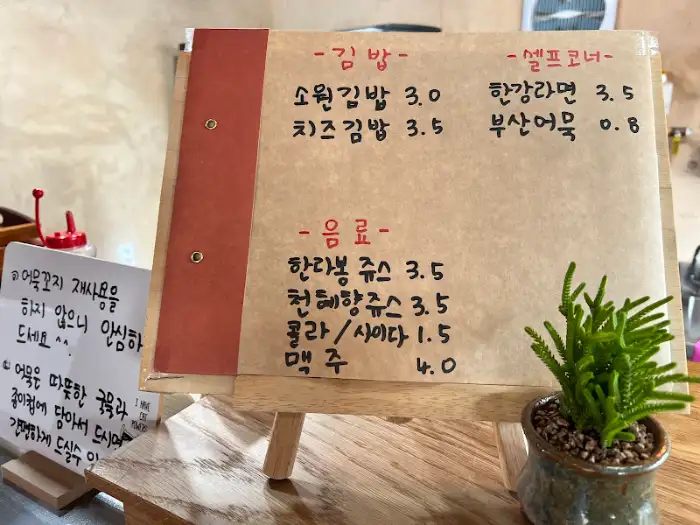 -김밥-
소원김밥 3.0
치즈김밥 3.5
-셀프코너-
한강라면 3.5
부산어묵 0.8
-음료-
한다봉쥬스 3.5
천혜향쥬스 3.5
콜라/사이다 1.5
맥주 4.0
어묵꼬지 재사용을
하지 않으니 안심하
드세요^^
어묵은 따뜻한 국물과
종이컵에 담아서 드시면
간편하게 드실수
I HAVE
CAT
POWERS